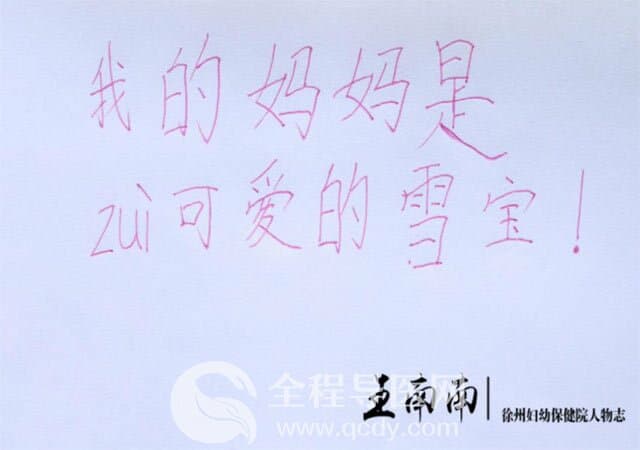 我的妈妈是
zuì可爱的雪宝！
王南南
徐州妇幼保健院人物志
全程导医网
www.qcdy.com